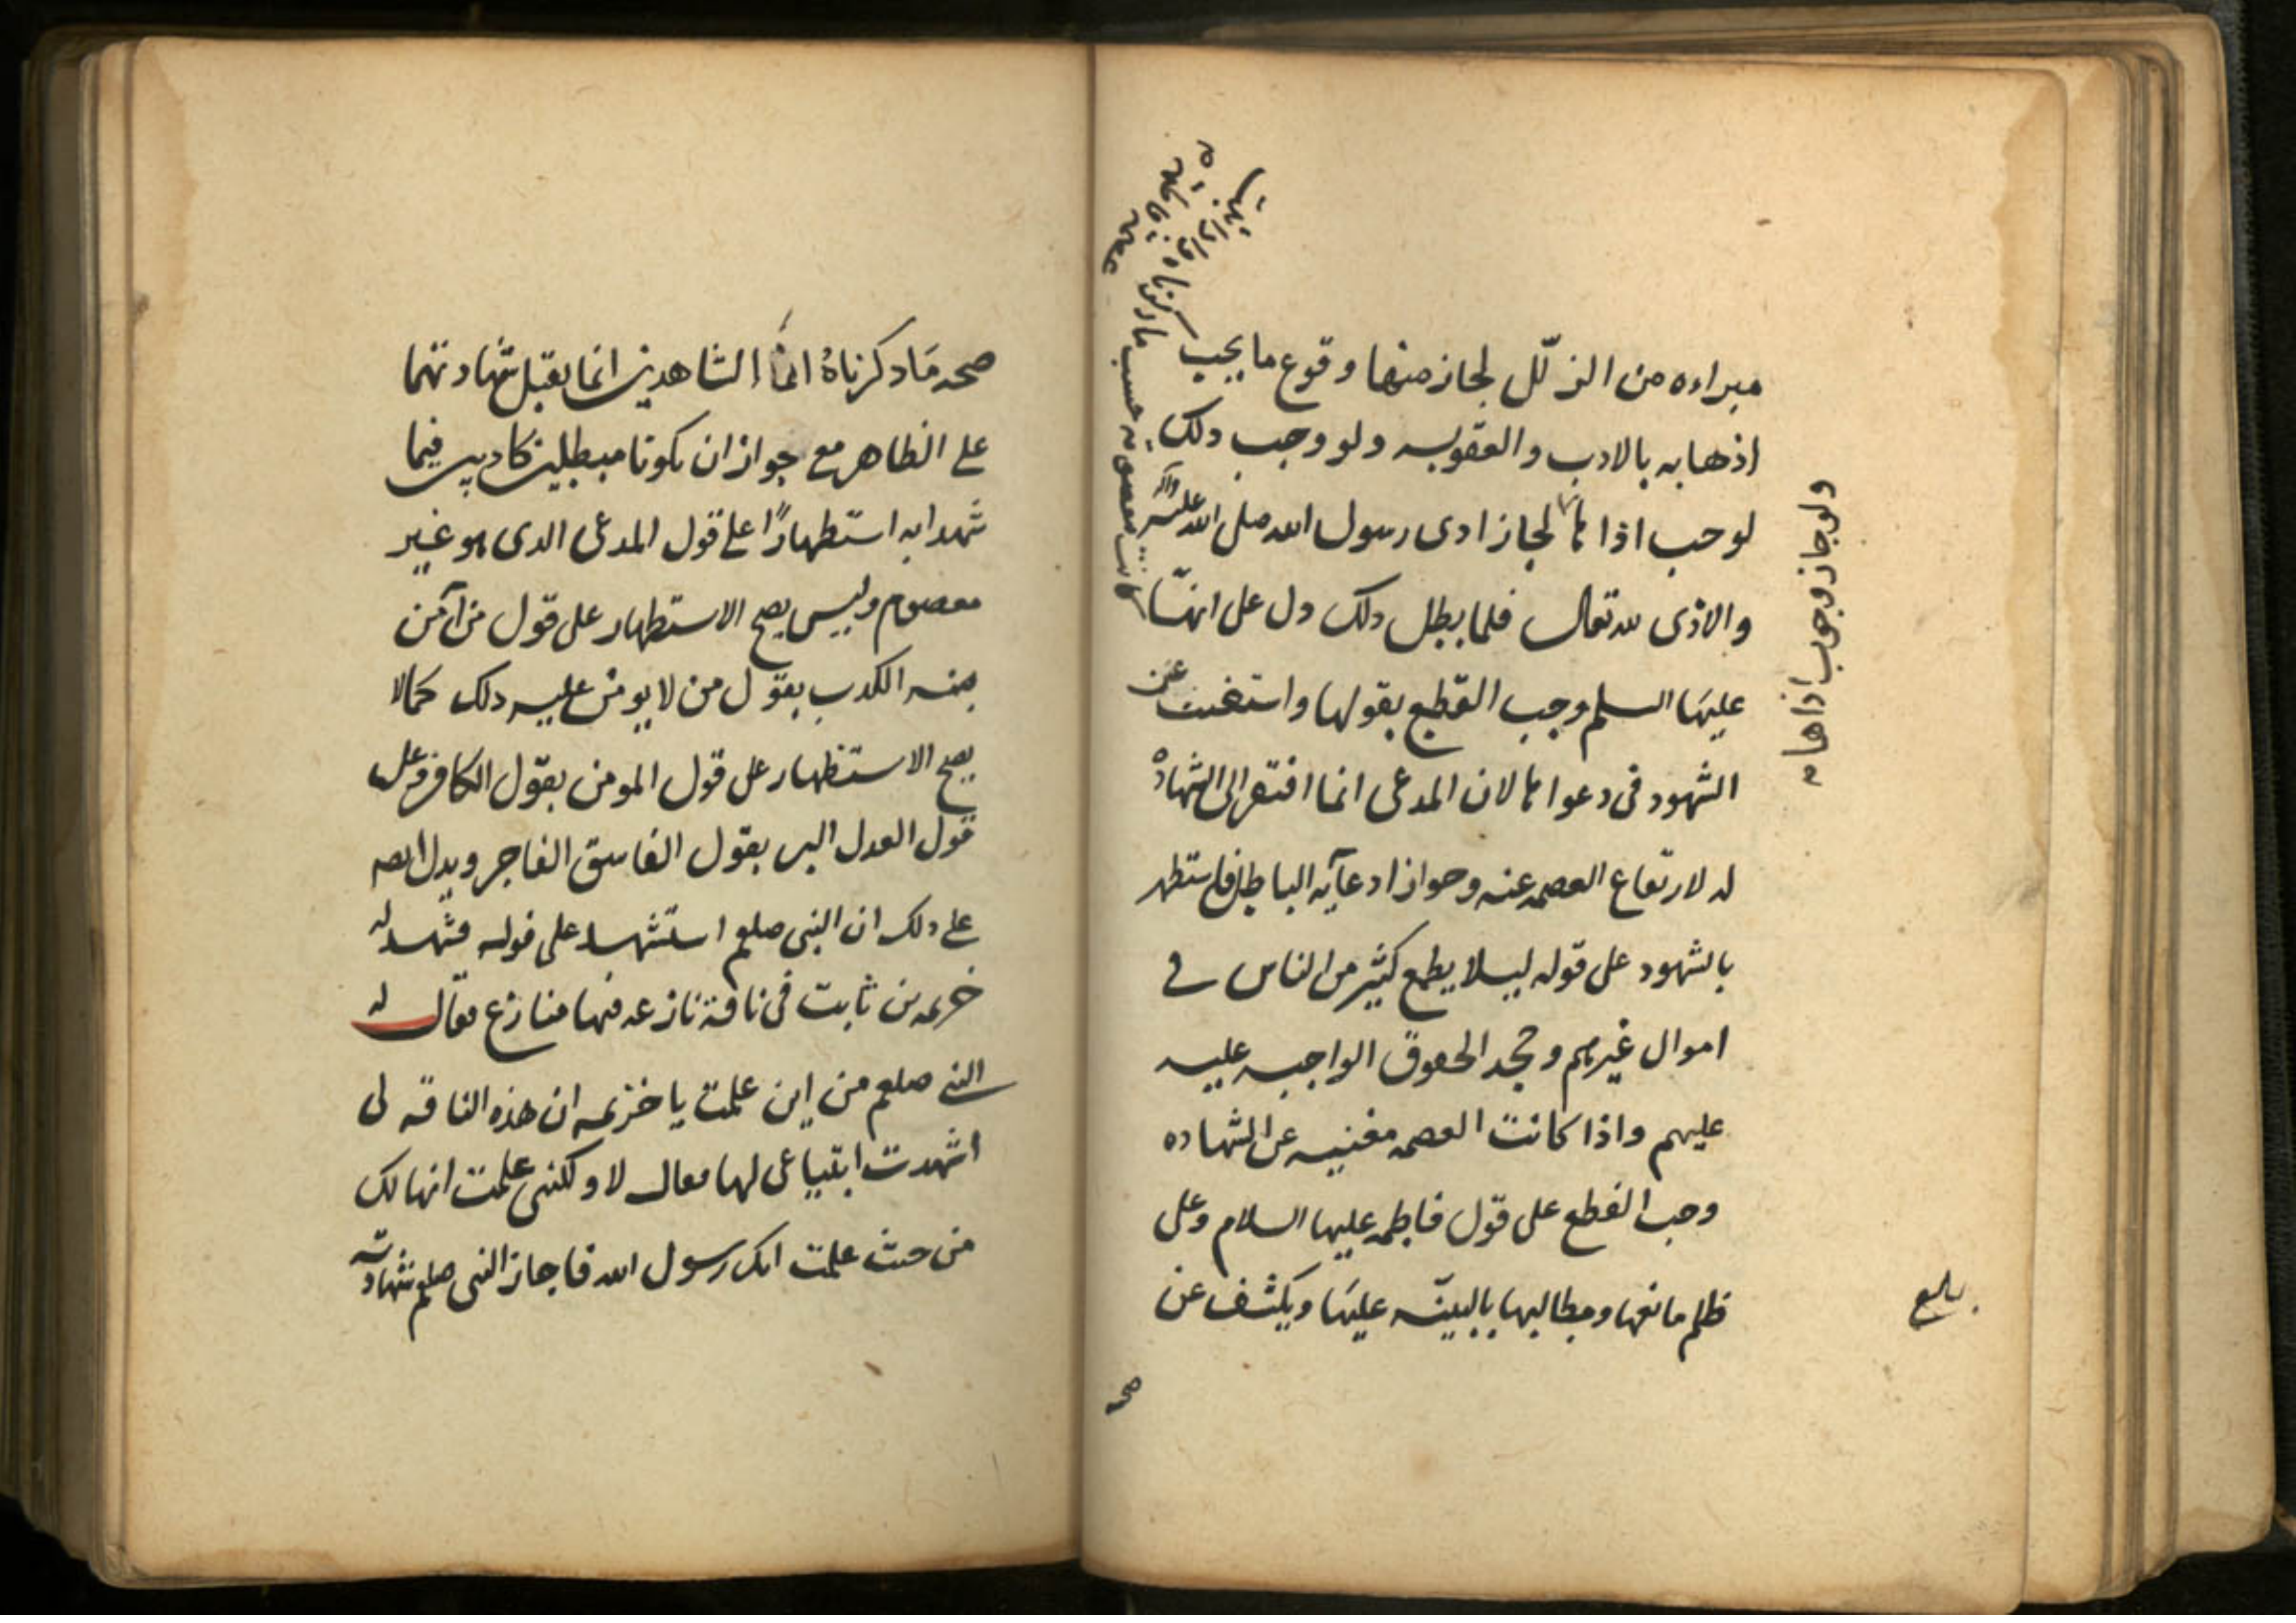 مبراءه من الزلّل لجاز منها وقوع ما يجب
اذهابه بالادب والعقوبه ولو وجب ذلك
لوجب اذاها لجاز اذى رسول الله صلى الله عليه وآله
والاذى لله تعالى فلما بطل ذلك دل على انهّا
عليهَا السلم وجب القطع بقولها واستغنت عن
الشهود فى دعواها لان المدعى انما افتقر الى الشهادة
له لارتفاع العصمه عنه وجواز ادعآيه الباطل فاستظهر
بالشهود على قوله ليلا يطمع كثير من الناس في
اموال غيرهم وجحد الحقوق الواجبه عليه
عليهم واذا كانت العصمه مغنيه عن الشهاده
وجب القطع على قول فاطمه عليها السلام وعلى
ظلم مانعها ومطالبها بالبينّه عليهَا ويكشف عن
صحه
ولو جاز وجوب اذاها
كانت معصومه حسب ما ذكرناه
بلغ
صحه مَا ذكرناهُ انّ الشاهدين انما يقبل شهادتهما
على الظاهر مع جواز ان يكونا مبطلين كاذبين فيما
شهدا به استظهارًا على قول المدعى الذى هو غير
معصوم وليس يصح الاستظهار على قول من آمن
منه الكذب بقول من لا يومن عليه ذلك كما لا
يصح الاستظهار على قول المومن بقول الكافر وعلى
قول العدل البر بقول الفاسق الفاجر ويدل ايضه
على ذلك ان النبى صلعم استشهد على قوله فشهد له
خزيمه بن ثابت فى ناقة نازعه فيها منازع فقال له
النبي صلعم من اين علمت يا خزيمه ان هذه الناقه لى
اشهدت ابتياعى لها فقال لا ولكننى علمت انها لك
من حيث علمت انك رسول الله فاجاز النبى صلعم شهادته